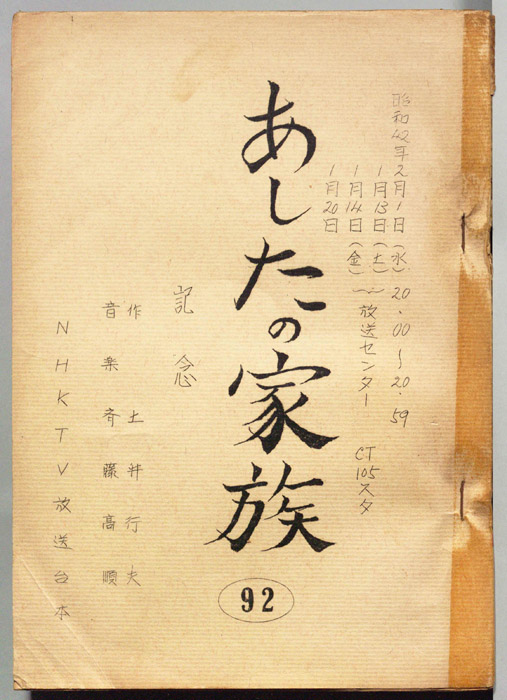 昭和42年2月1日（水）20.00〜20.59
1月13日（土）
1月14日（金）〜放送センター CT105スタ
1月20日
あしたの家族
92
記念
作 土井行夫
音楽 斉藤高順
NHKTV放送台本